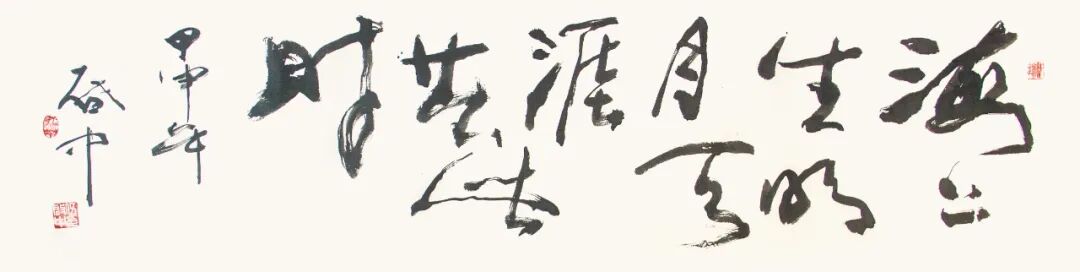 海上
生明
月天
涯
共此
时
甲申年